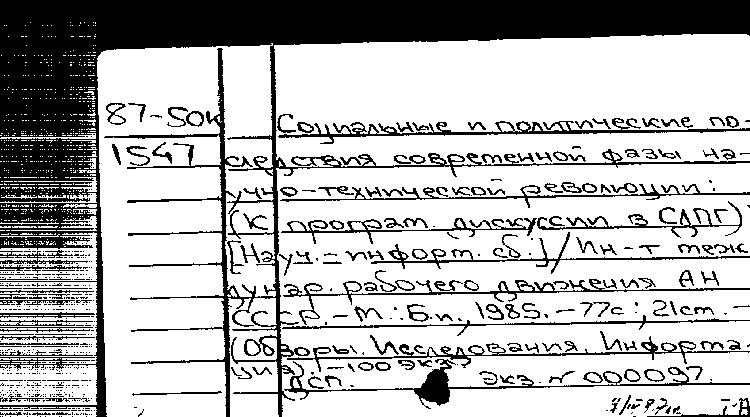 87-5ок Социальные и политические по-
1547 следствия современной фазы на-
учно-технической революции:
(К програм. дискуссии в СДПГ)
[Науч.-информ. сб.] / Ин-т меж
дунар. рабочего движения АН
СССР. - М.: Б.и., 1985. - 77с.; 21см. -
(Обзоры. Исследования. Информа-
ция). -100 экз.
ДСП. Экз. № 000097.